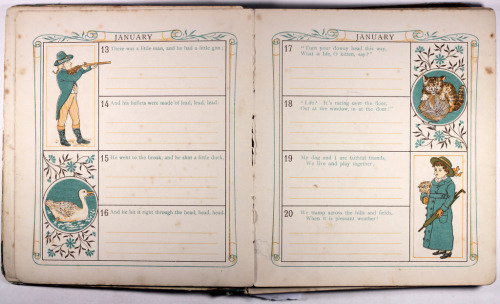 JANUARY
13 There was a little man, and he had a little gun;
14 And his bullets were made of lead, lead, lead;
15 He went to the brook, and he shot a little duck,
16 And he hit it right through the head, head, head.
JANUARY
17 "Turn your downy head this way,
What is life, O kitten, say?"
18 "Life? It's racing over the floor,
Out at the window, in at the door!"
19 My dog and I are faithful friends,
We live and play together;
20 We tramp across the hills and fields,
When it is pleasant weather!